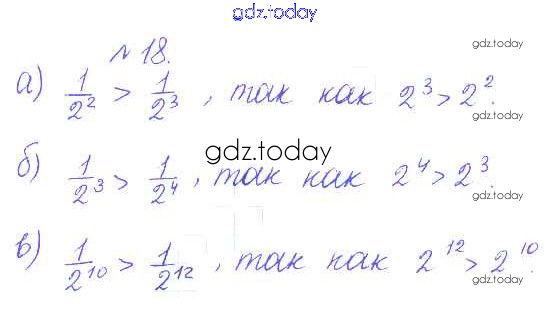 gdz.today
№ 18.
gdz.today
а) 1/2² > 1/2³, так как 2³ > 2².
gdz.today
gdz.today
б) 1/2³ > 1/2⁴, так как 2⁴ > 2³.
gdz.today
gdz.today
в) 1/2¹⁰ > 1/2¹², так как 2¹² > 2¹⁰.
gdz.today